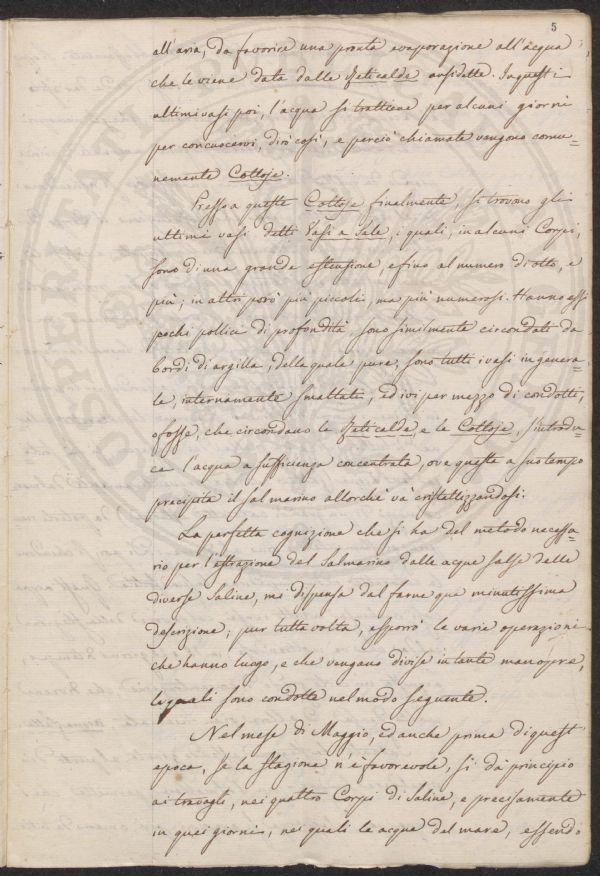 5
all'aria, da favorire una pronta evaporazione all'acqua
che le viene data dalle Raticalde ansidette. In questi
ultimi vasi poi, l'acqua si trattiene per alcuni giorni
per concuocervi, dirò così, e perciò chiamate vengono comu=
nemente Cottoje.
Presso a queste Cottoje finalmente, si trovono gli
ultimi vasi detti Vasi a Sale, i quali, in alcuni Corpi,
sono di una grande estensione, e fino al numero di otto, e
più; in altri però più piccoli, ma più numerosi. Hanno essi
pochi pollici di profondità, sono similmente circondati da
bordi di argilla, della quale pure, sono tutti i vasi in genera=
le, internamente smaltati, ed ivi per mezzo di condotti,
o fosse, che circondano le Raticalde, e le Cottoje, s'introdu=
ce l'acqua a sufficienza concentrata, ove questa a suo tempo
precipita il sal marino allorchè và cristallizzandosi.
La perfetta cognizione che si ha del metodo necessa=
rio per l'estrazione del Salmarino dalle acque salse delle
diverse Saline, me dispensa dal farne que minutissima
descrizione; pur tutta volta, esporrò le varie operazioni
che hanno luogo, e che vengano divise in tante manopre,
le quali sono condotte nel modo seguente.
Nel mese di Maggio, ed anche prima di quest'
epoca, se la stagione n'è favorevole, si dà principio
ai travagli, nei quattro Corpi di Saline, e precisamente
in quei giorni, nei quali le acque del mare, essendo